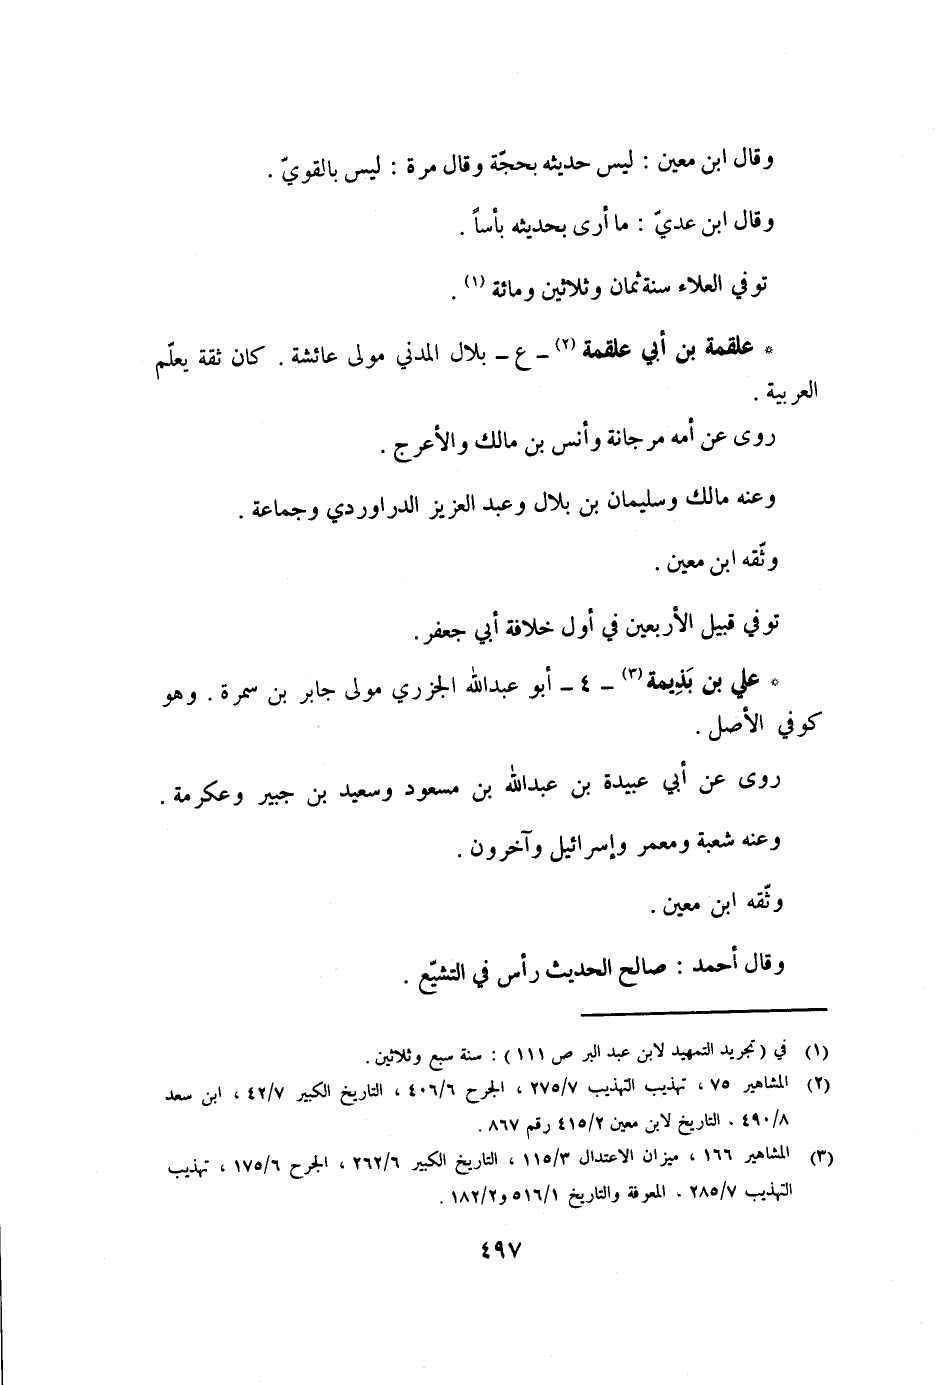 وقال ابن معين : ليس حديثه بحجّة وقال مرة : ليس بالقويّ .
وقال ابن عديّ : ما أرى بحديثه بأساً .
توفي العلاء سنة ثمان وثلاثين ومائة (١) .
* علقمة بن أبي علقمة (٢) ـ ع ـ بلال المدني مولى عائشة . كان ثقة يعلّم
العربية .
روى عن أمه مرجانة وأنس بن مالك والأعرج .
وعنه مالك وسليمان بن بلال وعبد العزيز الدراوردي وجماعة .
وثّقه ابن معين .
توفي قبيل الأربعين في أول خلافة أبي جعفر .
* علي بن بَذِيمة (٣) ـ ٤ ـ أبو عبدالله الجزري مولى جابر بن سمرة . وهو
كوفي الأصل .
روى عن أبي عبيدة بن عبدالله بن مسعود وسعيد بن جبير وعكرمة .
وعنه شعبة ومعمر وإسرائيل وآخرون .
وثّقه ابن معين .
وقال أحمد : صالح الحديث رأس في التشيّع .
(١) في ( تجريد التمهيد لابن عبد البر ص ١١١ ) : سنة سبع وثلاثين .
(٢) المشاهير ٧٥ ، تهذيب التهذيب ٢٧٥/٧ ، الجرح ٤٠٦/٦ ، التاريخ الكبير ٤٢/٧ ، ابن سعد
٤٩٠/٨ . التاريخ لابن معين ٤١٥/٢ رقم ٨٦٧ .
(٣) المشاهير ١٦٦ ، ميزان الاعتدال ١١٥/٣ ، التاريخ الكبير ٢٦٢/٦ ، الجرح ١٧٥/٦ ، تهذيب
التهذيب ٢٨٥/٧ . المعرفة والتاريخ ٥١٦/١ و١٨٢/٢ .
٤٩٧